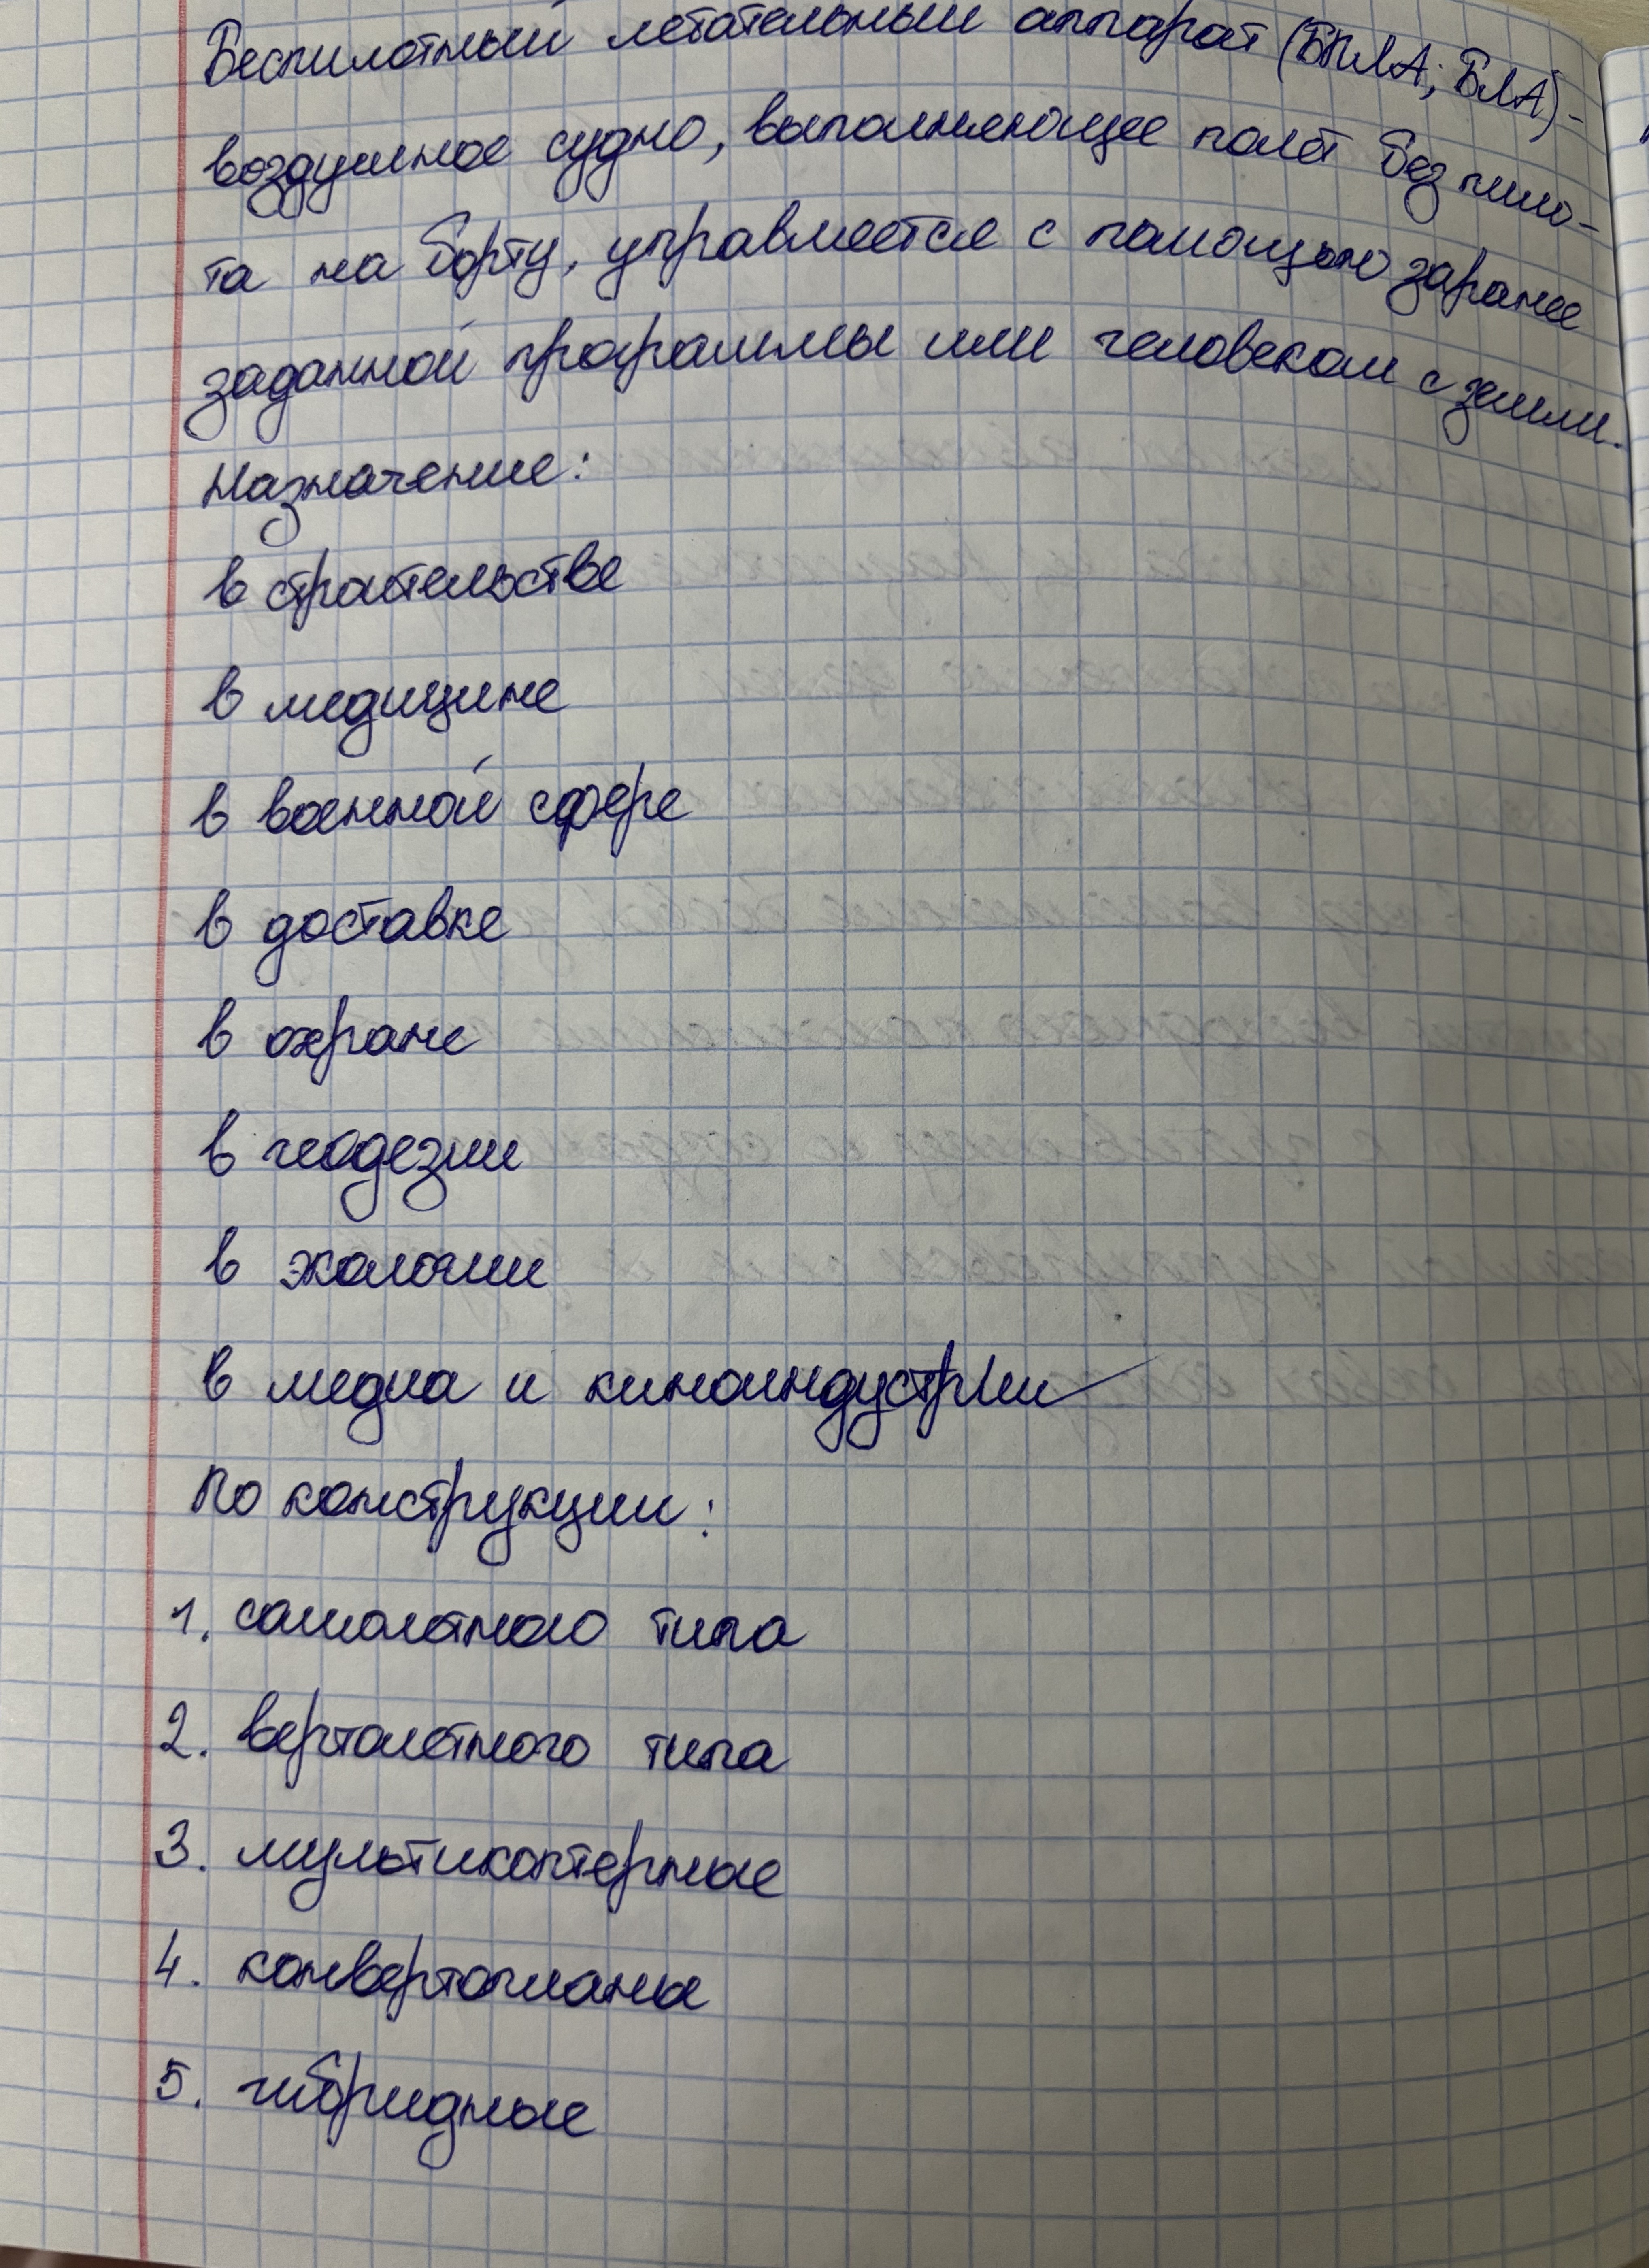 Беспилотный летательный аппарат (БПЛА; БЛА) -
воздушное судно, выполняющее полёт без пило-
та на борту, управляется с помощью заранее
заданной программы или человеком с земли.
Назначение:
в строительстве
в медицине
в военной сфере
в доставке
в охране
в геодезии
в экологии
в медиа и киноиндустрии
По конструкции:
1. самолётного типа
2. вертолётного типа
3. мультикоптерные
4. конвертопланы
5. гибридные